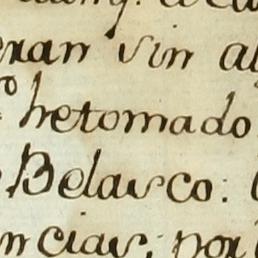 eran sin al
hetomado
Belasco:
ncias; por